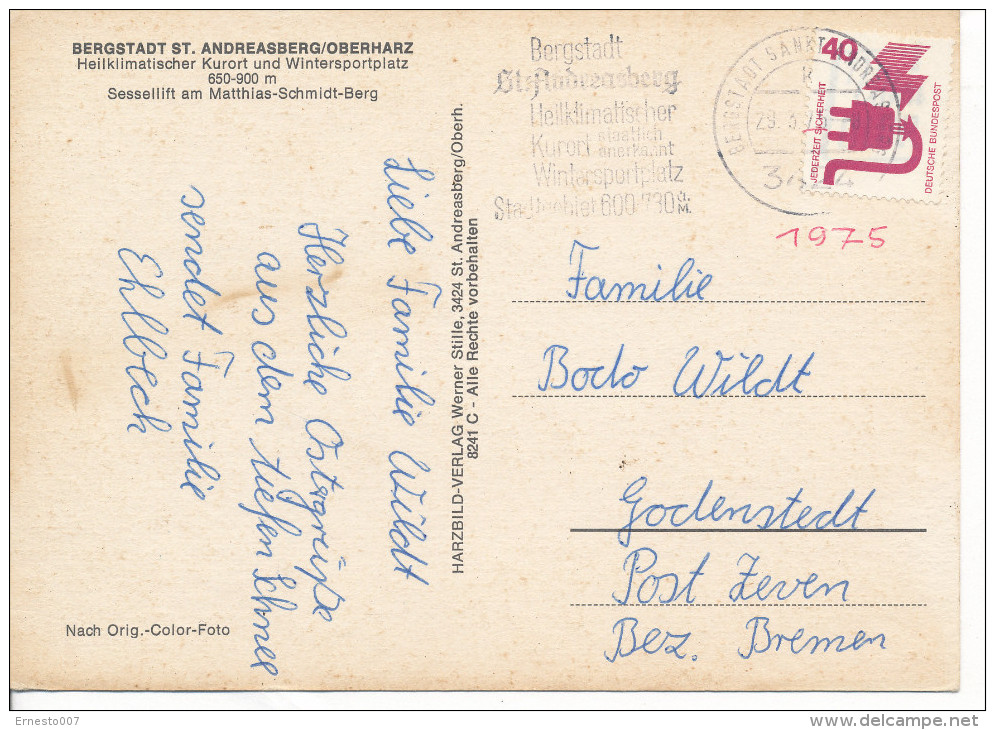 BERGSTADT ST. ANDREASBERG/OBERHARZ
Heilklimatischer Kurort und Wintersportplatz
650-900 m
Sessellift am Matthias-Schmidt-Berg
Liebe Familie Wildt
Herzliche Ostergrüße
aus dem tiefen Schnee
sendet Familie
Ehlbeck
Nach Orig.-Color-Foto
HARZBILD-VERLAG Werner Stille, 3424 St. Andreasberg/Oberh.
8241 C - Alle Rechte vorbehalten
Bergstadt
St. Andreasberg
Heilklimatischer
Kurort staatlich
anerkannt
Wintersportplatz
Stadtgebiet 600/730 ü.
M.
BERGSTADT SANKT ANDREASBERG
3424
40
JEDERZEIT SICHERHEIT
DEUTSCHE BUNDESPOST
1975
Familie
Bodo Wildt
Godenstedt
Post Zeven
Bez. Bremen
Ernesto007
delcampe.net